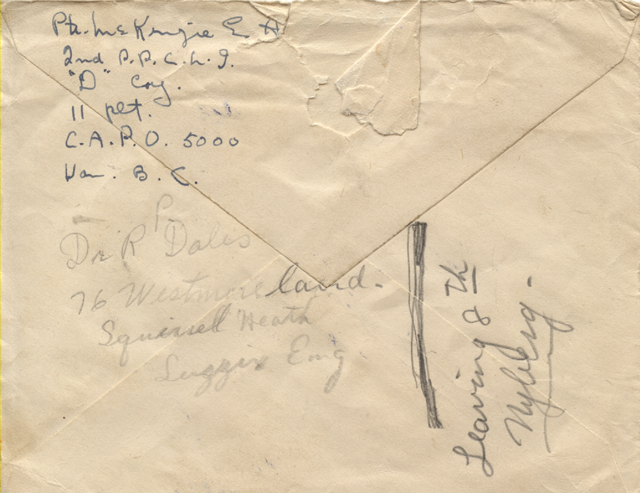 Pte. McKenzie E. H
2nd P.P.C.L.I.
"D" Coy.
11 plt.
C.A.P.O. 5000
Van. B. C.
P.
Dr. R Dales
76 Westmoreland.
Squirrell Heath
Eng
Leaving 8th
Nyberg.